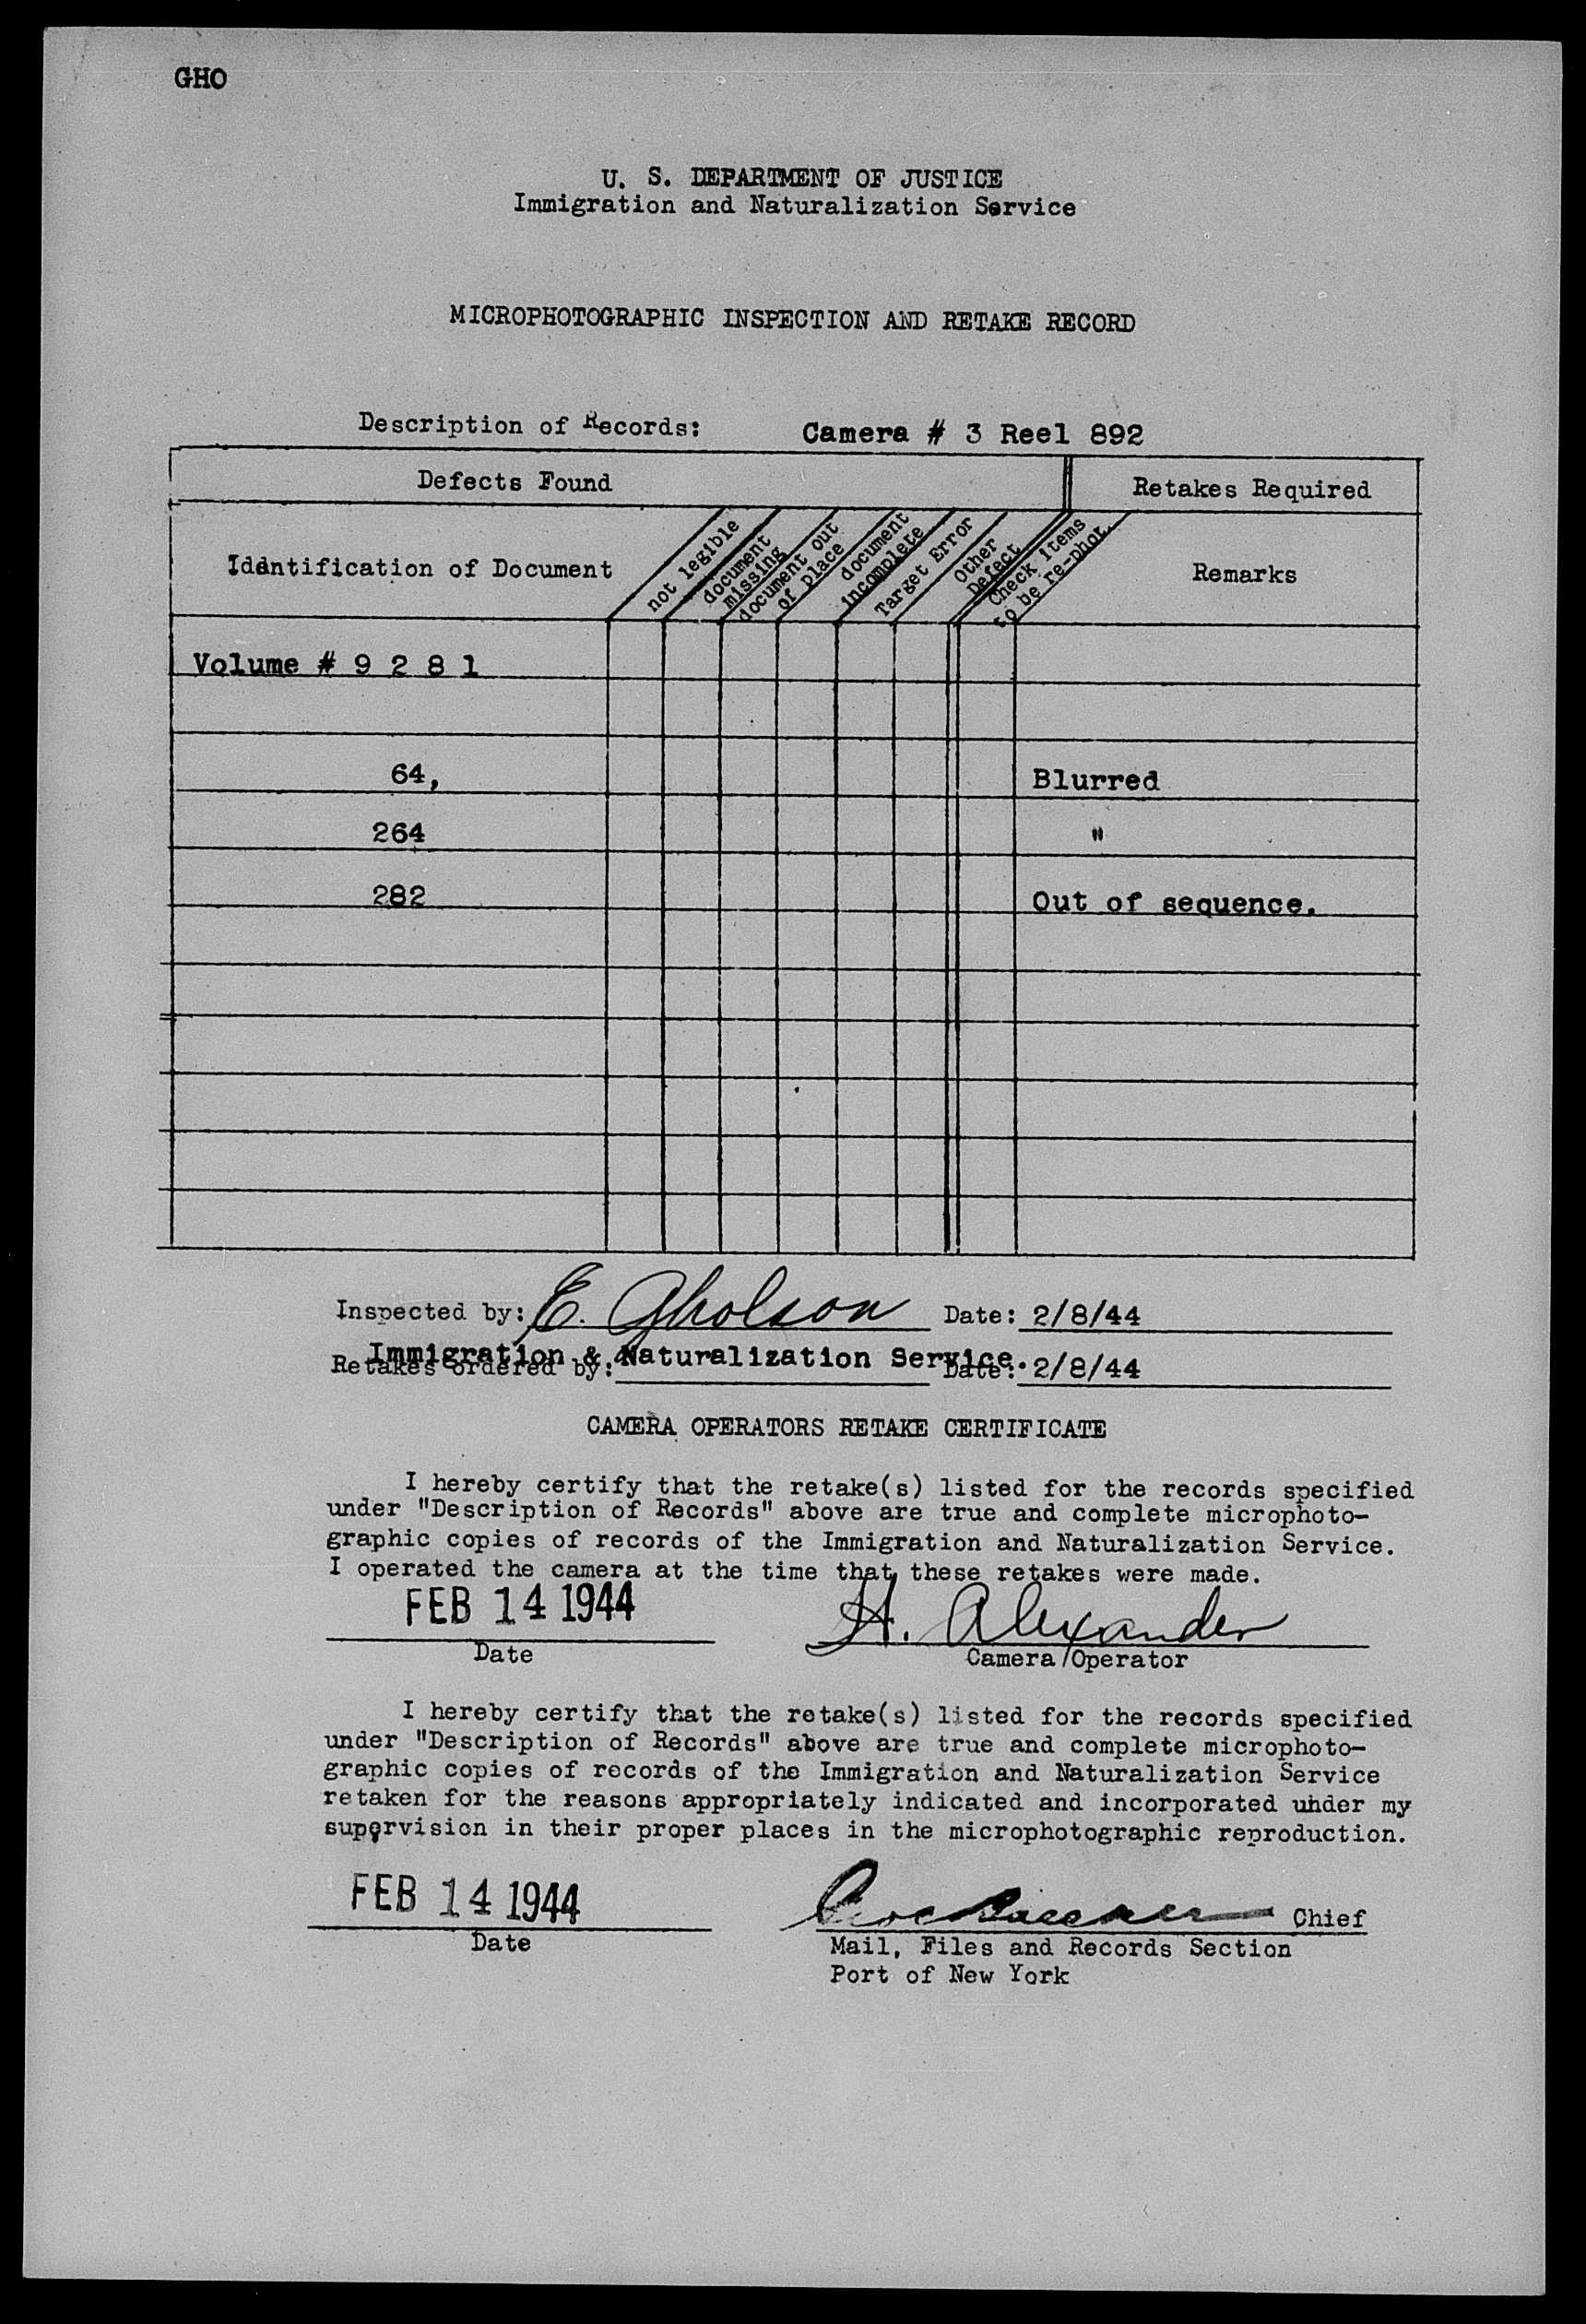 GHO
U. S. DEPARTMENT OF JUSTICE
Immigration and Naturalization Service
MICROPHOTOGRAPHIC INSPECTION AND RETAKE RECORD
Description of Records: Camera # 3 Reel 892
Defects Found
Retakes Required
Iddntification of Document
not legible
document missing
document out of place
document incomplete
Target Error
Other Defect
Check items to be re-phot.
Remarks
Volume # 9 2 8 1
64, Blurred
264 "
282 Out of sequence.
Inspected by: E. Gholson Date: 2/8/44
Immigration & Naturalization Service.
Retakes ordered by: Date: 2/8/44
CAMERA OPERATORS RETAKE CERTIFICATE
I hereby certify that the retake(s) listed for the records specified
under "Description of Records" above are true and complete microphoto-
graphic copies of records of the Immigration and Naturalization Service.
I operated the camera at the time that these retakes were made.
FEB 14 1944 H. Alexander
Date Camera Operator
I hereby certify that the retake(s) listed for the records specified
under "Description of Records" above are true and complete microphoto-
graphic copies of records of the Immigration and Naturalization Service
retaken for the reasons appropriately indicated and incorporated under my
supervision in their proper places in the microphotographic reproduction.
FEB 14 1944 Chief
Date Mail, Files and Records Section
Port of New York